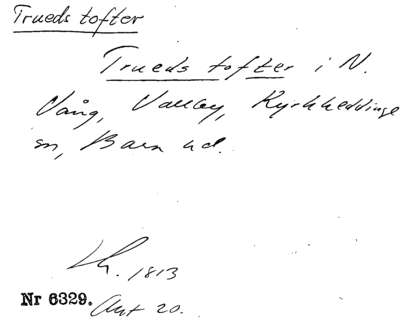 Trueds tofter
Trueds tofter i N.
Vång, Vallby, Kyrkheddinge
sn, Bara hd.
Lh. 1813
Nr 6329. Akt 20.